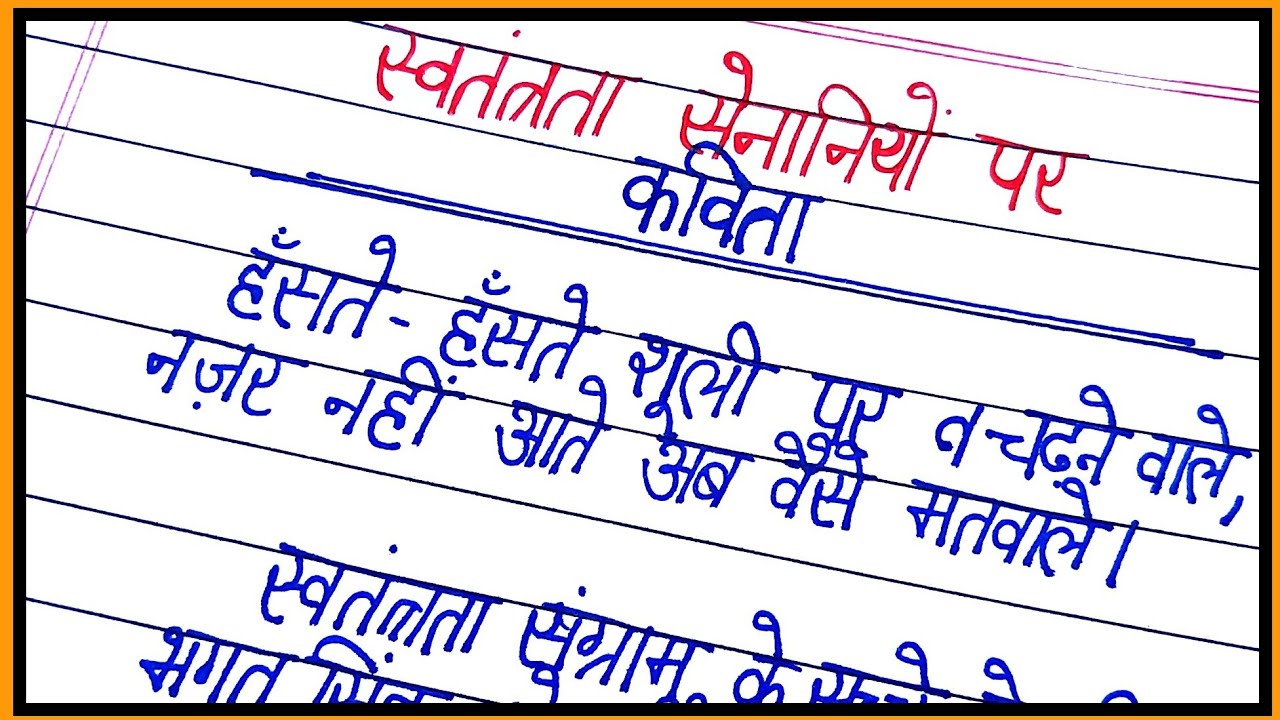 स्वतंत्रता सेनानियों पर
कविता
हँसते-हँसते शूली पर त चढ़ने वाले,
नज़र नहीं आते अब वैसे मतवाले।
स्वतंत्रता संग्राम के
भगत सिंह